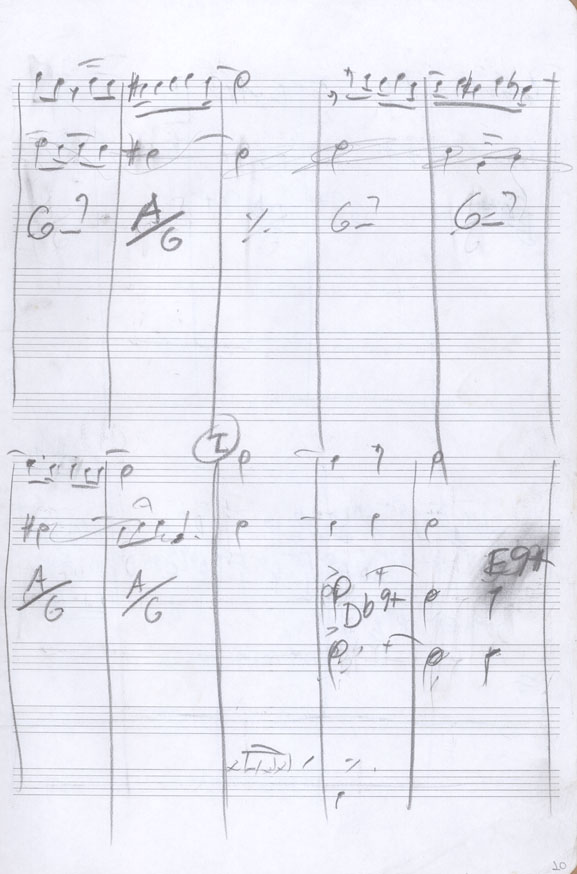 G-7 A/G ٪ G-7 G-7
I
E9+
A/G A/G Db9+
10